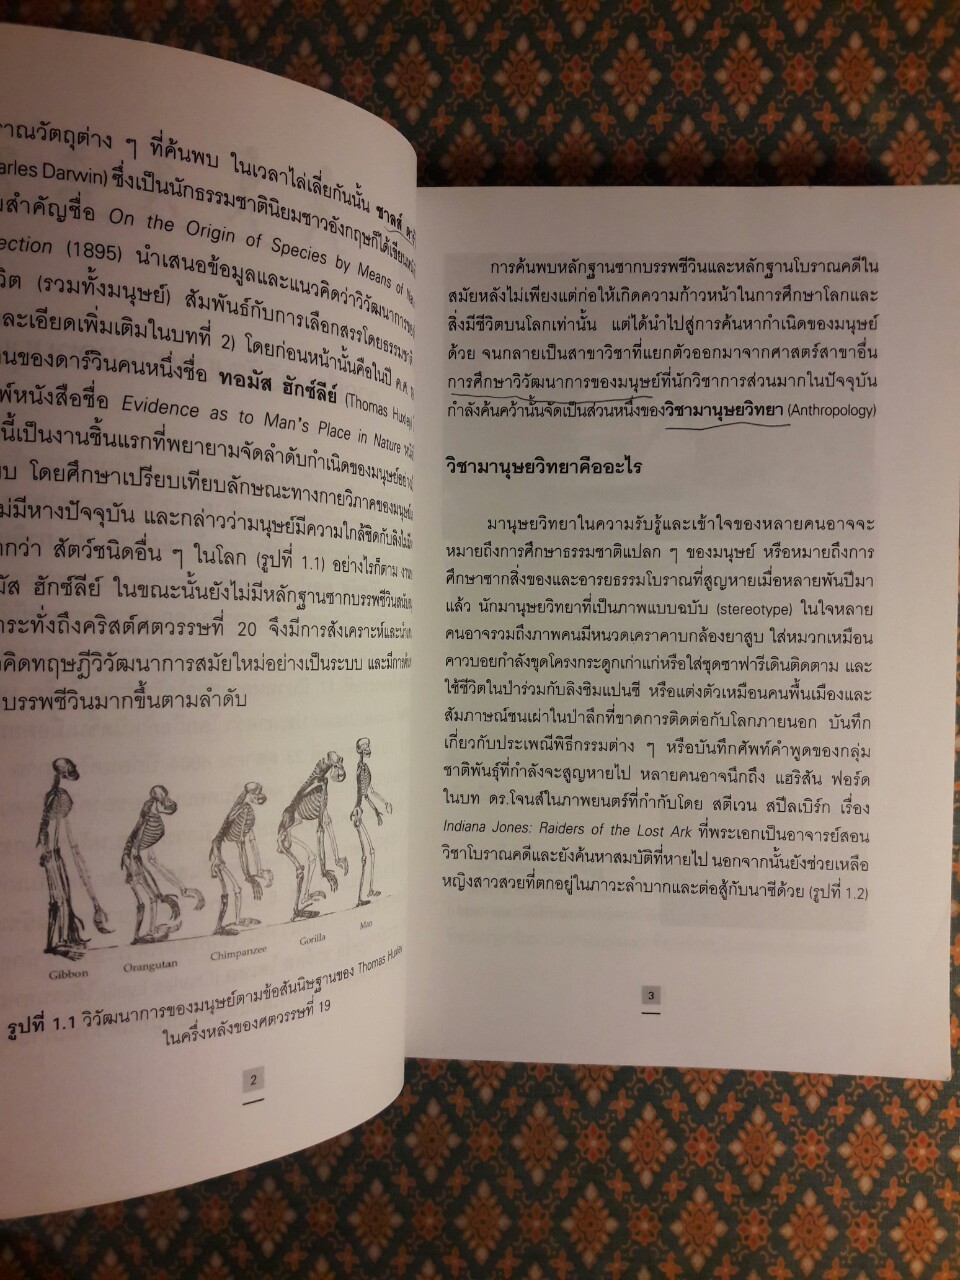 ราณวัตถุต่าง ๆ ที่ค้นพบ ในเวลาไล่เลี่ยกันนั้น ชาลส์
arles Darwin) ซึ่งเป็นนักธรรมชาตินิยมชาวอังกฤษก็ได้เขียน
สำคัญชื่อ On the Origin of Species by Means of
ection (1895) นำเสนอข้อมูลและแนวคิดว่าวิวัฒนาการ
วิต (รวมทั้งมนุษย์) สัมพันธ์กับการเลือกสรรโดยธรรมชาติ
ละเอียดเพิ่มเติมในบทที่ 2) โดยก่อนหน้านั้นคือในปี ค.ศ.
นของดาร์วินคนหนึ่งชื่อ ทอมัส ฮักซ์ลีย์ (Thomas Huxley)
พ์หนังสือชื่อ Evidence as to Man's Place in Nature
นี้เป็นงานชิ้นแรกที่พยายามจัดลำดับกำเนิดของมนุษย์อย่าง
บ โดยศึกษาเปรียบเทียบลักษณะทางกายวิภาคของมนุษย์
ม่มีหางปัจจุบัน และกล่าวว่ามนุษย์มีความใกล้ชิดกับลิงไม่มี
กกว่า สัตว์ชนิดอื่น ๆ ในโลก (รูปที่ 1.1) อย่างไรก็ตาม
มัส ฮักซ์ลีย์ ในขณะนั้นยังไม่มีหลักฐานซากบรรพชีวิน
ระทั่งถึงคริสต์ศตวรรษที่ 20 จึงมีการสังเคราะห์และ
คิดทฤษฎีวิวัฒนาการสมัยใหม่อย่างเป็นระบบ และมีการ
บรรพชีวินมากขึ้นตามลำดับ
Gibbon Orangutan Chimpanzee Gorilla Man
รูปที่ 1.1 วิวัฒนาการของมนุษย์ตามข้อสันนิษฐานของ Thomas Huxley
ในครึ่งหลังของศตวรรษที่ 19
2
การค้นพบหลักฐานซากบรรพชีวินและหลักฐานโบราณคดีใน
สมัยหลังไม่เพียงแต่ก่อให้เกิดความก้าวหน้าในการศึกษาโลกและ
สิ่งมีชีวิตบนโลกเท่านั้น แต่ได้นำไปสู่การค้นหากำเนิดของมนุษย์
ด้วย จนกลายเป็นสาขาวิชาที่แยกตัวออกมาจากศาสตร์สาขาอื่น
การศึกษาวิวัฒนาการของมนุษย์ที่นักวิชาการส่วนมากในปัจจุบัน
กำลังค้นคว้านั้นจัดเป็นส่วนหนึ่งของวิชามานุษยวิทยา (Anthropology)
วิชามานุษยวิทยาคืออะไร
มานุษยวิทยาในความรับรู้และเข้าใจของหลายคนอาจจะ
หมายถึงการศึกษาธรรมชาติแปลก ๆ ของมนุษย์ หรือหมายถึงการ
ศึกษาซากสิ่งของและอารยธรรมโบราณที่สูญหายเมื่อหลายพันปีมา
แล้ว นักมานุษยวิทยาที่เป็นภาพแบบฉบับ (stereotype) ในใจหลาย
คนอาจรวมถึงภาพคนมีหนวดเคราคาบกล้องยาสูบ ใส่หมวกเหมือน
คาวบอยกำลังขุดโครงกระดูกเก่าแก่หรือใส่ชุดซาฟารีเดินติดตาม และ
ใช้ชีวิตในป่าร่วมกับลิงชิมแปนซี หรือแต่งตัวเหมือนคนพื้นเมืองและ
สัมภาษณ์ชนเผ่าในป่าลึกที่ขาดการติดต่อกับโลกภายนอก บันทึก
เกี่ยวกับประเพณีพิธีกรรมต่าง ๆ หรือบันทึกศัพท์คำพูดของกลุ่ม
ชาติพันธุ์ที่กำลังจะสูญหายไป หลายคนอาจนึกถึง แฮริสัน ฟอร์ด
ในบท ดร.โจนส์ในภาพยนตร์ที่กำกับโดย สตีเวน สปีลเบิร์ก เรื่อง
Indiana Jones: Raiders of the Lost Ark ที่พระเอกเป็นอาจารย์สอน
วิชาโบราณคดีและยังค้นหาสมบัติที่หายไป นอกจากนั้นยังช่วยเหลือ
หญิงสาวสวยที่ตกอยู่ในภาวะลำบากและต่อสู้กับนาซีด้วย (รูปที่ 1.2)
3